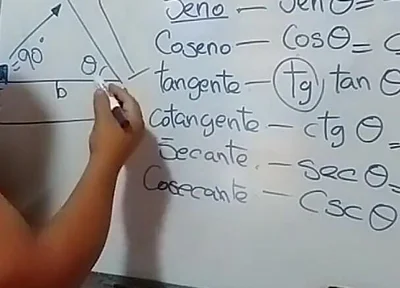 Seno — Sen θ =
Coseno — Cosθ = C
tangente — tg, tan θ
cotangente — ctg θ =
Secante. — Sec θ =
Cosecante — Csc θ
90°
θ
b